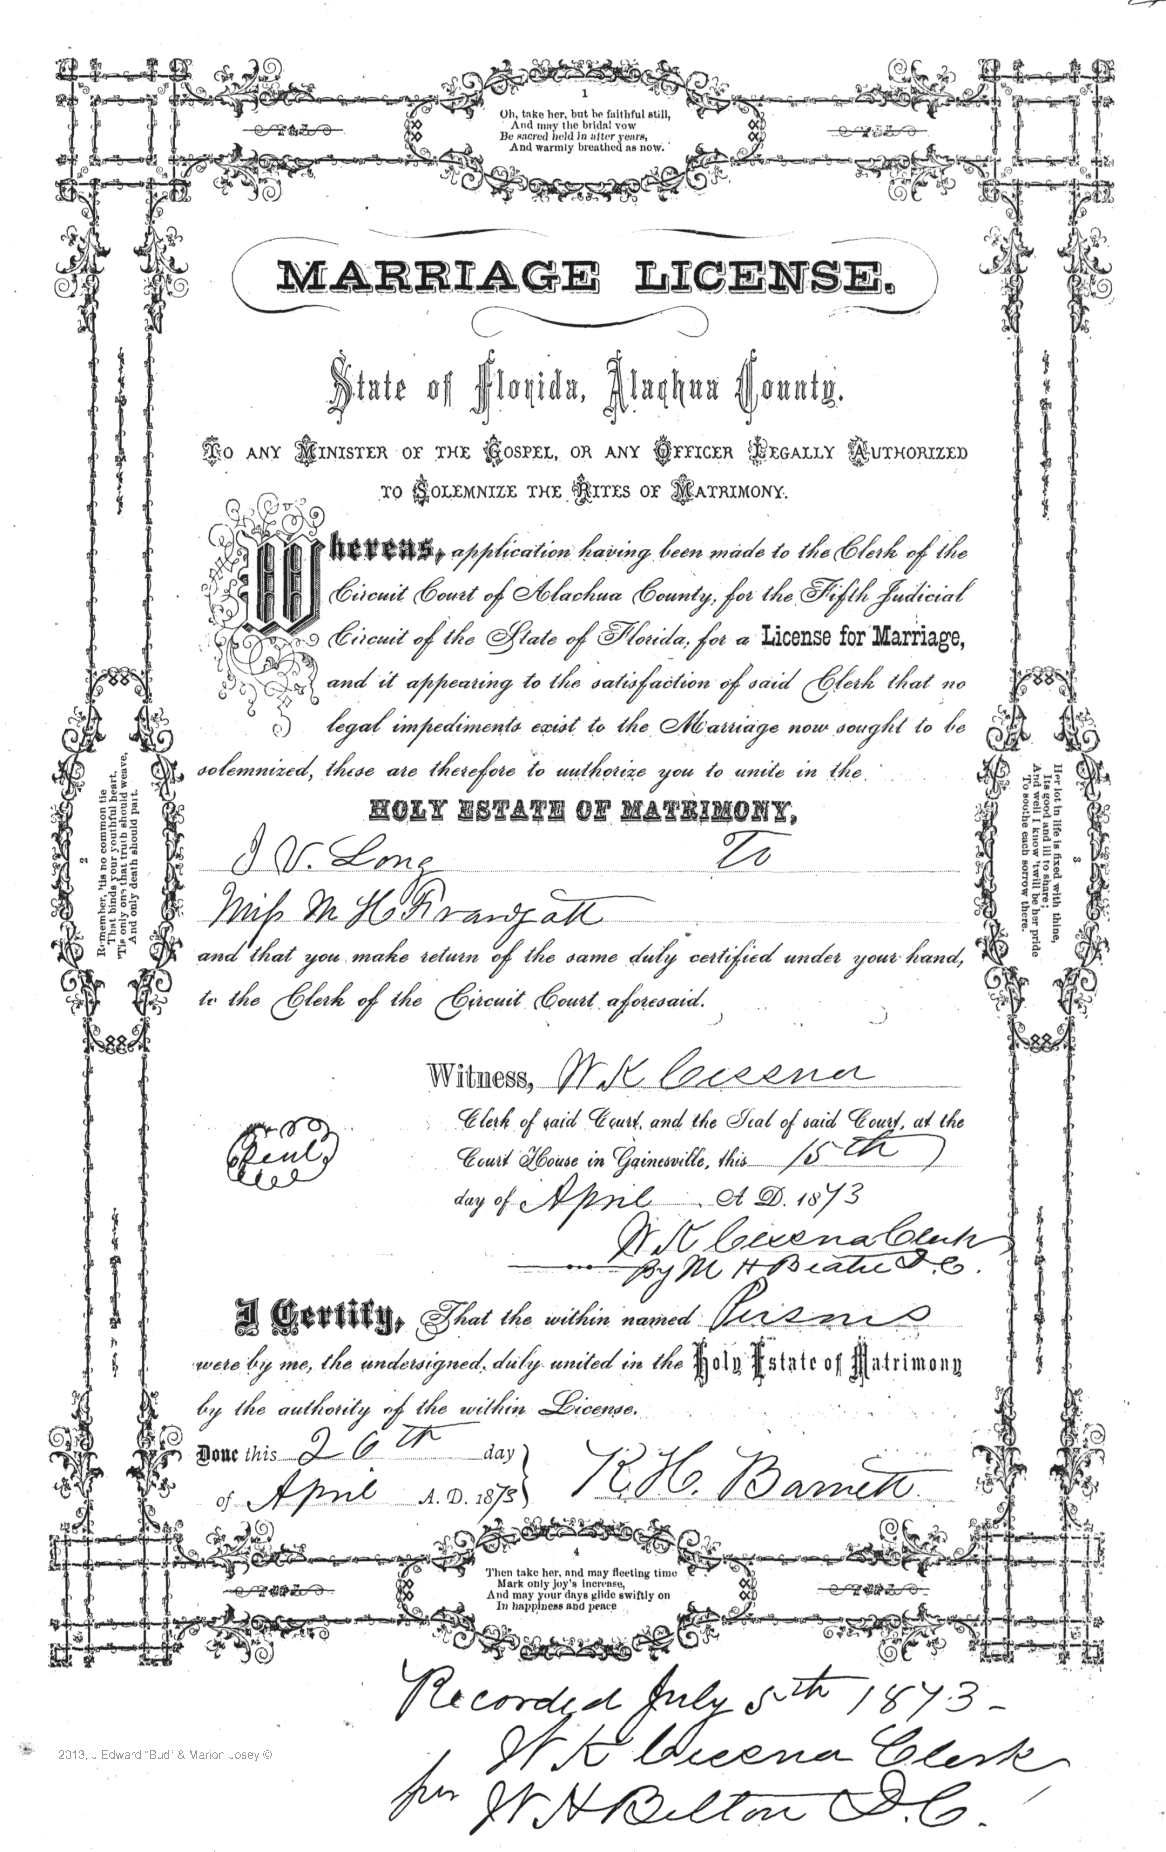 1
Oh, take her, but be faithful still,
And may the bridal vow
Be sacred held in after years,
And warmly breathed as now.
MARRIAGE LICENSE.
State of Florida, Alachua County.
TO ANY MINISTER OF THE GOSPEL, OR ANY OFFICER LEGALLY AUTHORIZED
TO SOLEMNIZE THE RITES OF MATRIMONY.
Whereas, application having been made to the Clerk of the
Circuit Court of Alachua County, for the Fifth Judicial
Circuit of the State of Florida, for a License for Marriage,
and it appearing to the satisfaction of said Clerk that no
legal impediments exist to the Marriage now sought to be
solemnized, these are therefore to authorize you to unite in the
HOLY ESTATE OF MATRIMONY,
J V. Long To
Miss M H
and that you make return of the same duly certified under your hand,
to the Clerk of the Circuit Court aforesaid.
2
Remember, 'tis no common tie
That binds your youthful heart,
'Tis only one that truth should weave,
And only death should part.
3
Her lot in life is fixed with thine,
Its good and ill to share;
And well I know 'twill be her pride
To soothe each sorrow there.
Witness, W K Cessna
Clerk of said Court, and the Seal of said Court, at the
Court House in Gainesville, this 15th
day of April A D. 1873
Seal
W K Cessna Clerk
By M H Beatie D.C.
I Certify, That the within named Persons
were by me, the undersigned, duly united in the Holy Estate of Matrimony
by the authority of the within License.
Done this 26th day
of April A. D. 1873
R. H. Barnett
4
Then take her, and may fleeting time
Mark only joy's increase,
And may your days glide swiftly on
In happiness and peace
Recorded July 5th 1873-
W K Cessna Clerk
per W H Belton D.C.
2013, J Edward "Bud" & Marion Josey ©